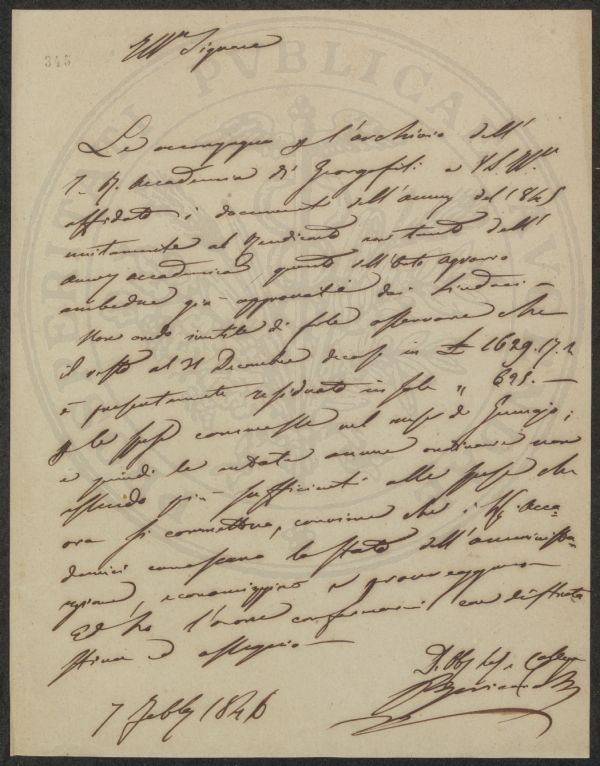 345
Ill.mo Signore
Le accompagno p l'archivio dell'
I. R. Accademia dei Georgofili a V.S. Ill.ma
affidato i documenti dell'anno del 1845
unitamente al Rendiconto tanto dell'
anno accademico quanto dell'Orto agrario
ambedue già approvati dai Sindaci —
Non credo inutile di farle osservare che
il resto al 31 Decembre decorso in £ 1629.17.2
è presentemente residuato in sole " 695. —
p le spese commesse nel mese di Gennajo;
e quindi le entrate annue ordinarie non
essendo più sufficienti alle spese che
ora si commettono, conviene che i SS.i Acca=
demici conoscano lo stato dell'amministra=
zione, economizzino e provveggano —
Ed ho l'onore confermarmi con distinta
stima e ossequio —
7 Febb 1846